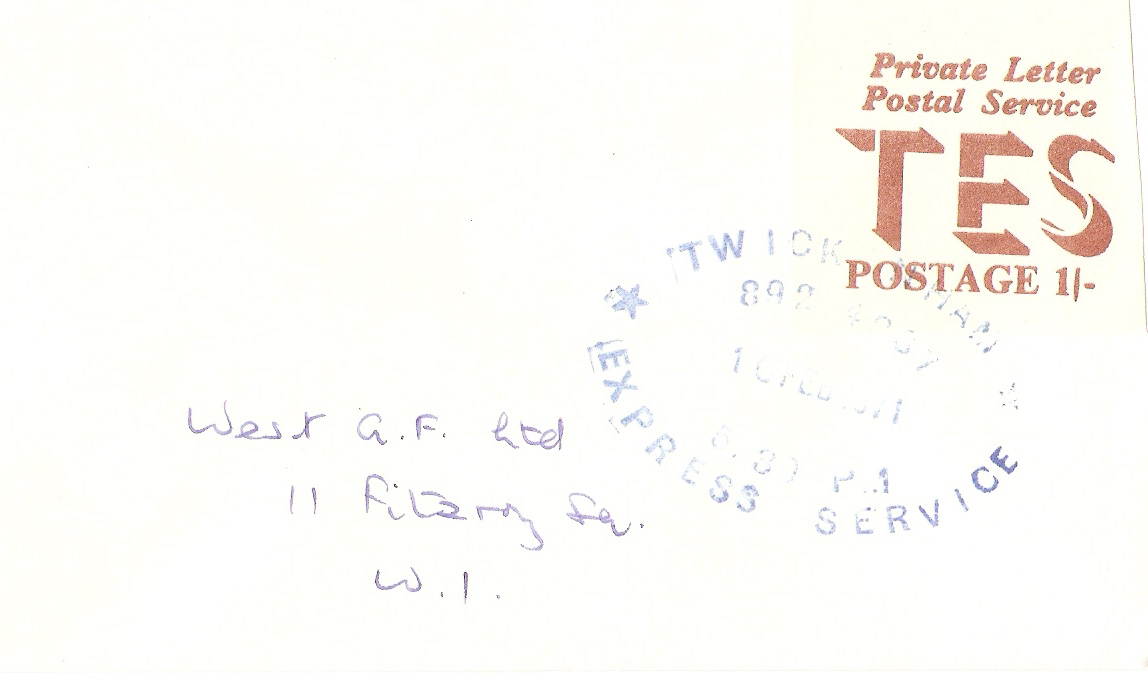 Private Letter
Postal Service
TES
POSTAGE 1/-
TWICKENHAM
892
P.M
EXPRESS SERVICE
West A.F. Ltd
11 Fitzroy Sq.
W.1.